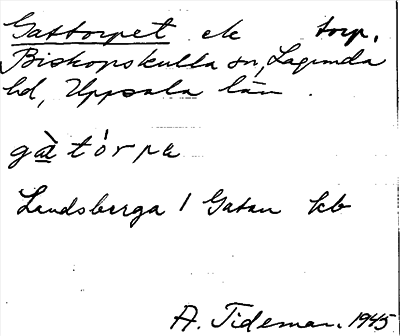 Gattorpet ek torp.
Biskopskulla sn, Lagunda
hd, Uppsala län.
gàtórpe
Landsberga / Gatan kb
A. Tideman. 1945